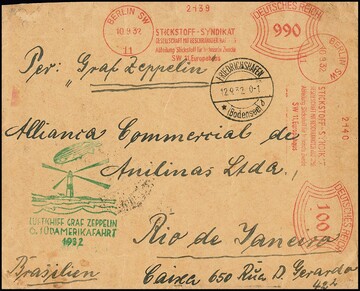 BERLIN SW
10.9.32
11
2139
STICKSTOFF-SYNDIKAT
GESELLSCHAFT MIT BESCHRÄNKTER HAFTUNG
Abteilung Stickstoff für technische Zwecke
SW 11 Europahaus
DEUTSCHES REICH
990
Per: "Graf Zeppelin"
FRIEDRICHSHAFEN
12.9.32.0-1
* (Bodensee) d
BERLIN SW
9.32
2140
STICKSTOFF-SYNDIKAT
SW 11 Europahaus
DEUTSCHES REICH
100
Allianca Commercial de
Anilinas Ltda.,
LUFTSCHIFF GRAF ZEPPELIN
6. SÜDAMERIKAFAHRT
1932
Rio de Janeiro
Brasilien
Caixa 650 Rua D. Gerardo
42²